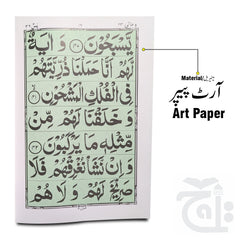 يَّسْبَحُوْنَ ﴿۴۰﴾ وَ اٰيَةٌ
لَّهُمْ اَنَّا حَمَلْنَا ذُرِّيَّتَهُمْ
فِى الْفُلْكِ الْمَشْحُوْنِ ﴿۴۱﴾
وَ خَلَقْنَا لَهُمْ مِّنْ
مِّثْلِهٖ مَا يَرْكَبُوْنَ ﴿۴۲﴾
وَ اِنْ نَّشَاْ نُغْرِقْهُمْ فَلَا
صَرِيْخَ لَهُمْ وَ لَا هُمْ
Material/میٹریل
آرٹ پیپر
Art Paper